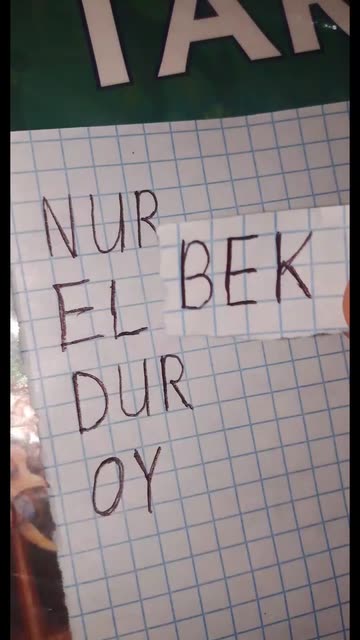 TAR
NUR
BEK
EL
DUR
OY